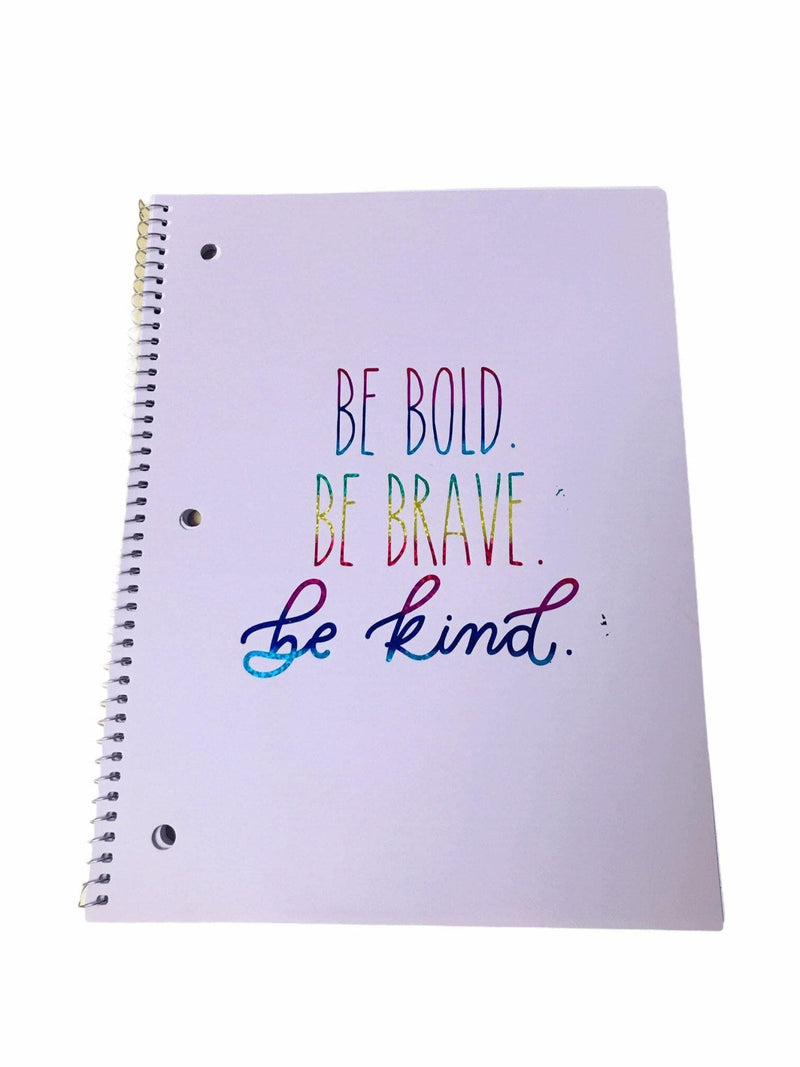 BE BOLD.
BE BRAVE.
be kind.